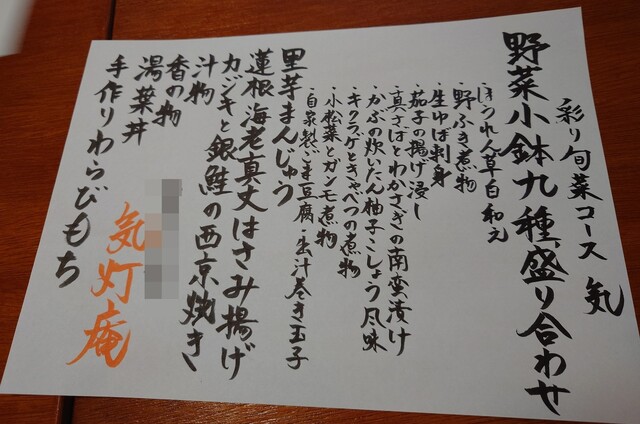 彩り旬菜コース 気
野菜小鉢九種盛り合わせ
・ほうれん草白和え
・野ぶき煮物
・生ゆば刺身
・茄子の揚げ浸し
・真さばとわかさぎの南蛮漬け
・かぶの炊いたん柚子こしょう風味
・キクラゲときゃべつの煮物
・小松菜とガンモ煮物
・自家製ごま豆腐・出汁巻き玉子
里芋まんじゅう
蓮根 海老真丈はさみ揚げ
カジキと銀鮭の西京焼き
汁物
香の物
湯葉丼
手作りわらびもち
気灯庵